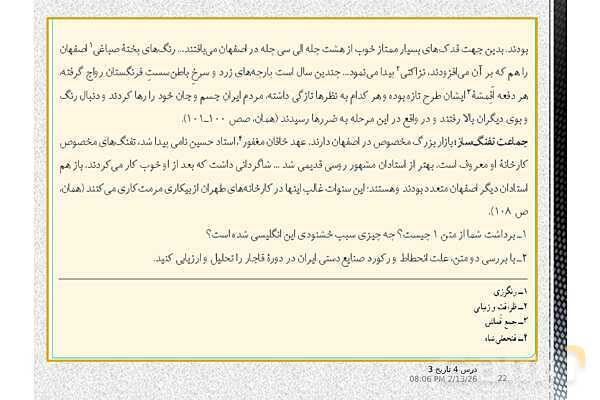 بودند. بدین جهت قدک‌های بسیار ممتاز خوب از هشت چله الی سی چله در اصفهان می‌بافتند... رنگ‌های پختهٔ صباغی۱ اصفهان
را هم که بر آن می‌افزودند، نزاکتی۲ پیدا می‌نمود... چندین سال است پارچه‌های زرد و سرخ باطن‌سست فرنگستان رواج گرفته،
هر دفعه اَقمشهٔ۳ ایشان طرح تازه بوده و هر کدام به نظرها تازگی داشته، مردم ایران جسم و جان خود را رها کردند و دنبال رنگ
و بوی دیگران بالا رفتند و در واقع در این مرحله به ضررها رسیدند (همان، صص ۱۰۰ــ۱۰۱).
جماعت تفنگ‌ساز: بازار بزرگ مخصوص در اصفهان دارند. عهد خاقان مغفور۴، استاد حسین نامی پیدا شد، تفنگ‌های مخصوص
کارخانهٔ او معروف است. بهتر از استادان مشهور روسی قدیمی شد ... شاگردانی داشت که بعد از او خوب کار می‌کردند. باز هم
استادان دیگر اصفهان متعدد بودند و هستند؛ این سنوات غالب اینها در کارخانه‌های طهران از بیکاری مرمت‌کاری می‌کنند (همان،
ص ۱۰۸).
۱ــ برداشت شما از متن ۱ چیست؟ چه چیزی سبب خشنودی این انگلیسی شده است؟
۲ــ با بررسی دو متن، علت انحطاط و رکورد صنایع دستی ایران در دورهٔ قاجار را تحلیل و ارزیابی کنید.
۱ــ رنگرزی
۲ــ ظرافت و زیبایی
۳ــ جمع قماش
۴ــ فتحعلی شاه
درس 4 تاریخ 3
08:06 PM 2/13/26
22